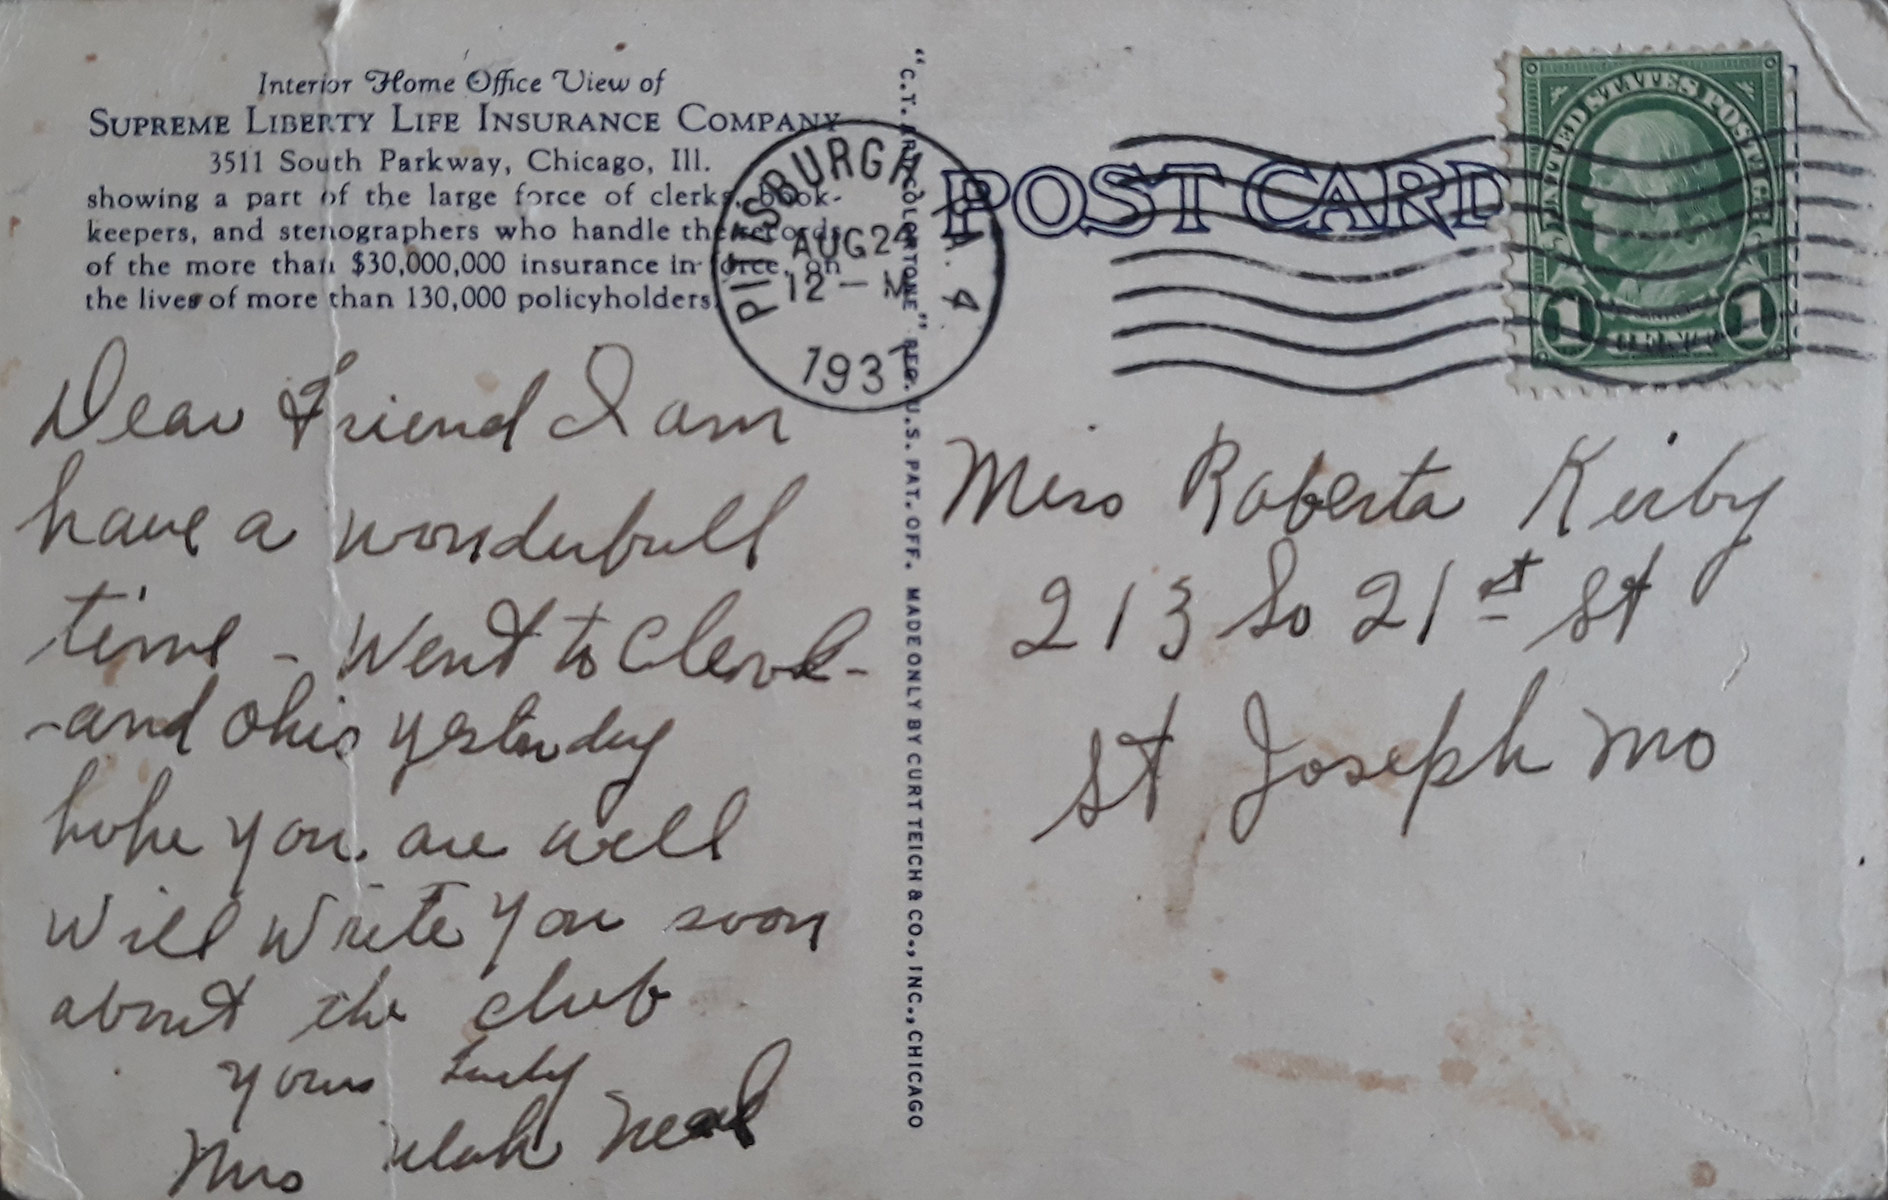 Interior Home Office View of
SUPREME LIBERTY LIFE INSURANCE COMPANY
3511 South Parkway, Chicago, Ill.
showing a part of the large force of clerks, book-
keepers, and stenographers who handle the records
of the more than $30,000,000 insurance in force, on
the lives of more than 130,000 policyholders.
Dear Friend I am
have a wonderfull
time - Went to Cleve-
-and Ohio yesterday
hope you are well
Will Write You soon
about the club
yours truly
Mrs Neal
"C.T. ART-COLORTONE" REG. U.S. PAT. OFF. MADE ONLY BY CURT TEICH & CO., INC., CHICAGO
PITTSBURGH, PA. 4
AUG 24
12 - M
1937
POST CARD
UNITED STATES POSTAGE
1 CENT 1
Miss Roberta Kirby
213 So 21st St
St Joseph Mo